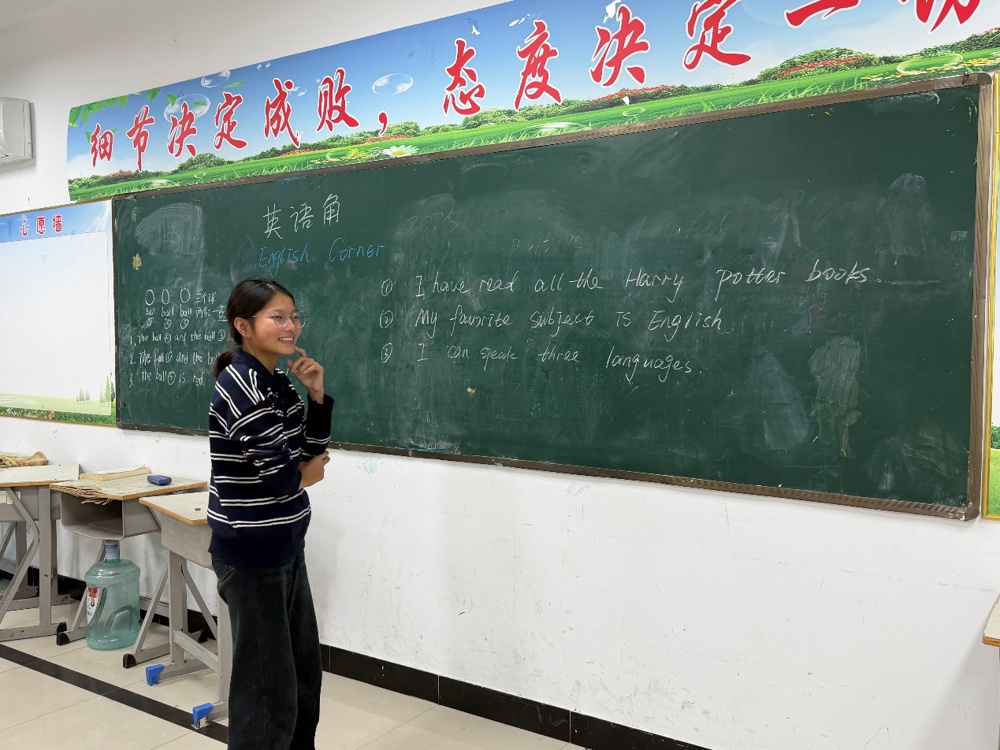 细节决定成败，态度决定一切
心愿墙
英语角
English Corner
① I have read all the Harry potter books.
② My favorite subject is English
③ I can speak three languages.
三个球
ball ball ball
① ② ③
1. The ball ② and the ball ③
2. The ball ① and the
3. The ball ③ is red